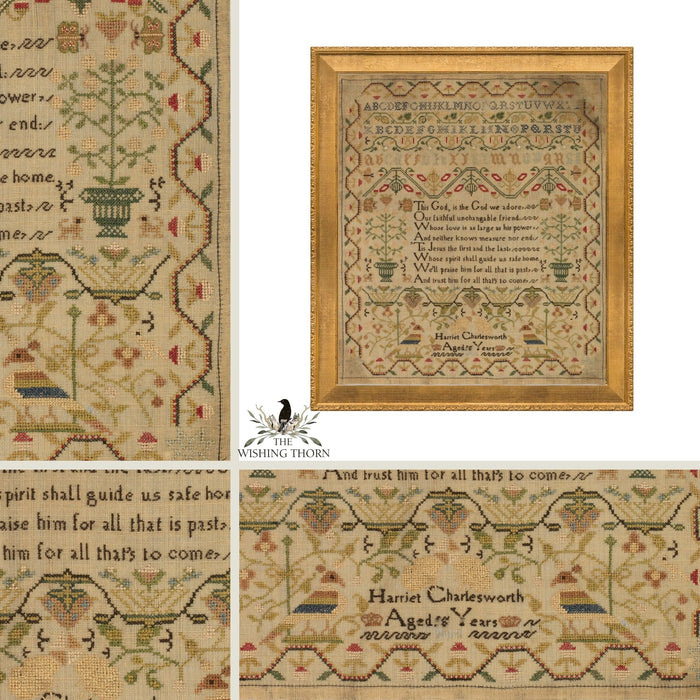 e
:
ower
end:
e home
past
me
ABCDEFGHIJKLMNOPQRSTUVWX
ABCDEFGHIKLMNOPQRSTU
This God, is the God we adore
Our faithful unchangable friend
Whose love is as large as his power
And neither knows measure nor end:
To Jesus the first and the last
Whose spirit shall guide us safe home
We'll praise him for all that is past
And trust him for all that's to come
Harriet Charlesworth
Aged 8 Years
THE
WISHING THORN
spirit shall guide us safe hom
raise him for all that is past
him for all that's to come
Charles
And trust him for all that's to come
Harriet Charlesworth
Aged 8 Years